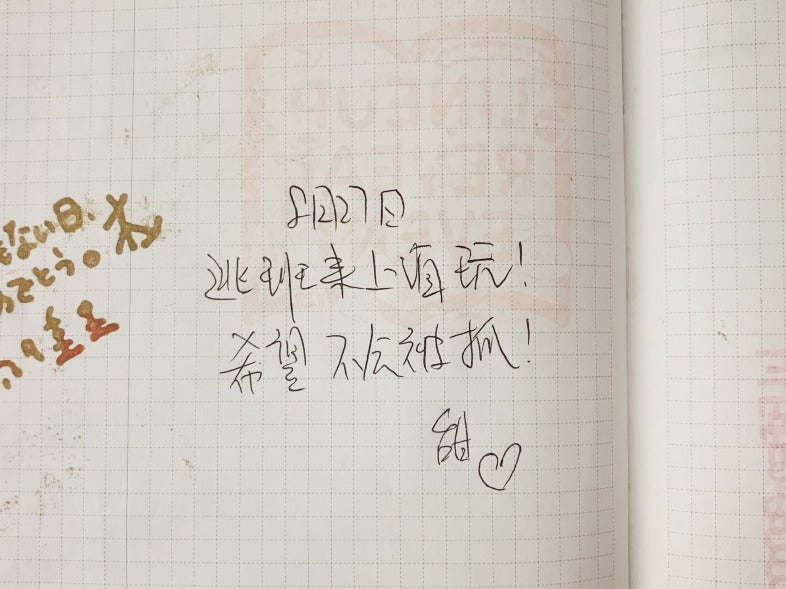 ない日、
でとう。
8月27日
逃班来上值玩!
希望不会被抓!
甜♡